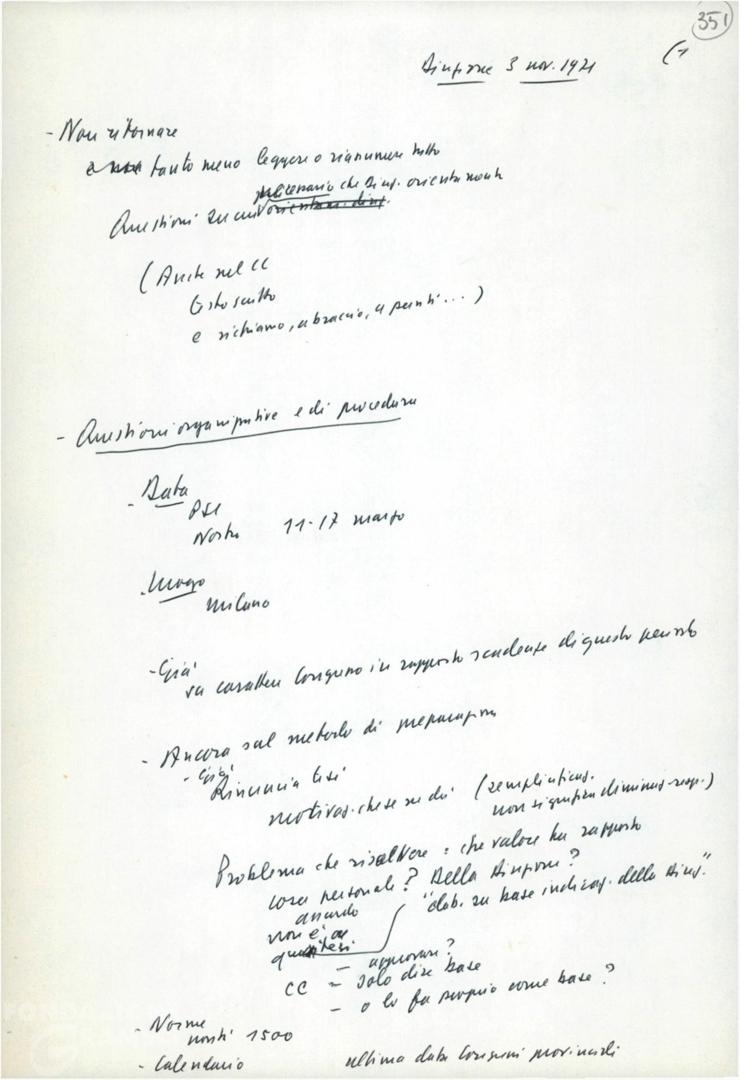 351
(1
Direzione 3 nov. 1971
- Non ritornare
e tanto meno leggere o riassumere tutto
necessario che Direz. orientamenti
Questioni su cui orientam. direz.
(Anche nel CC
testo scritto
e richiamo, a braccio, a punti...)
- Questioni organizzative e di procedura
- Data
PSI
Nostro 11-17 marzo
- Luogo
Milano
- Già
su carattere Congresso in rapporto scadenze di questo periodo
- Ancora sul metodo di preparazione
- Già
Rinuncia tesi
motivaz. che se ne dà (semplificaz.
non significa diminuz. resp.)
Problema che risolvere = che valore ha rapporto
cosa personale? Della Direzione?
quando "elab. su base indicaz. della Direz."
non è
tesi
- approvare?
CC = solo dire base
- o lo fa proprio come base?
- Norme
nostri 1500
- Calendario ultima data Congressi provinciali
FONDA
G